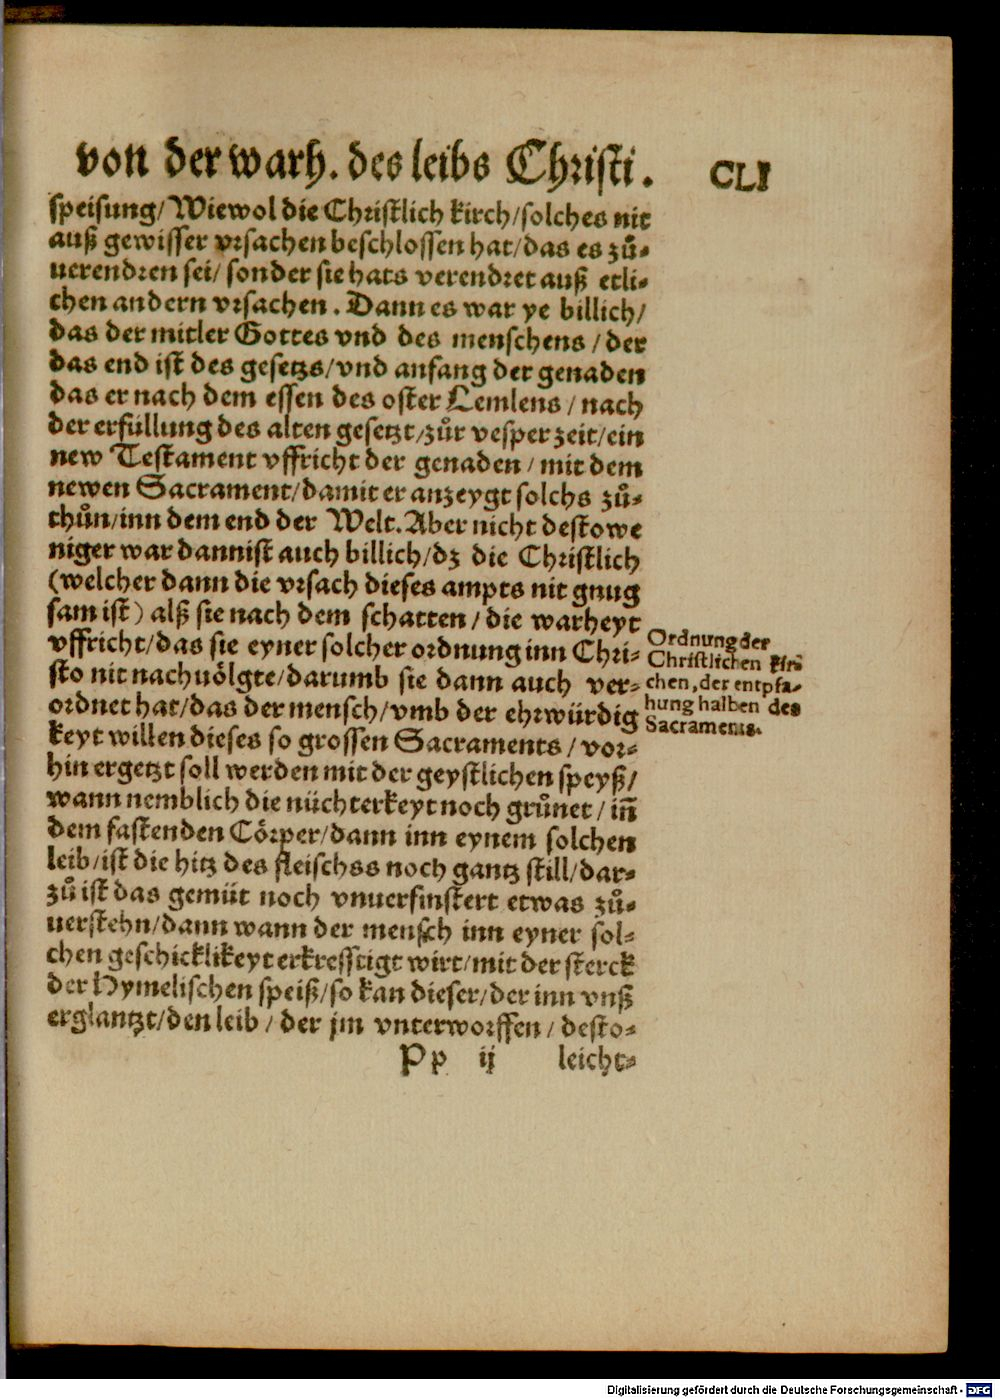 von der warh. des leibs Christi. CLI
speisung/Wiewol die Christlich kirch/solches nit
auß gewisser vrsachen beschlossen hat/das es zů-
uerendren sei/ sonder sie hats verendret auß etli-
chen andern vrsachen. Dann es war ye billich/
das der mitler Gottes vnd des menschens / der
das end ist des gesetzs/vnd anfang der genaden
das er nach dem essen des oster Lemlens / nach
der erfüllung des alten gesetzt/zůr vesper zeit/ein
new Testament vffricht der genaden / mit dem
newen Sacrament/damit er anzeygt solchs zů-
thůn/inn dem end der Welt. Aber nicht destowe
niger war dannist auch billich/dz die Christlich
(welcher dann die vrsach dieses ampts nit gnug
sam ist) alß sie nach dem schatten / die warheyt
vffricht/das sie eyner solcher ordnung inn Chri-
sto nit nachuölgte/darumb sie dann auch ver-
ordnet hat/das der mensch/vmb der ehrwürdig
keyt willen dieses so grossen Sacraments / vor-
hin ergetzt soll werden mit der geystlichen speyß/
wann nemblich die nüchterkeyt noch grůnet / iñ
dem fastenden Cörper/dann inn eynem solchen
leib/ist die hitz des fleischss noch gantz still/dar-
zů ist das gemüt noch vnuerfinstert etwas zů-
uerstehn/dann wann der mensch inn eyner sol-
chen geschicklikeyt erkresstigt wirt/mit der sterck
der Hymelischen speiß/so kan dieser/der inn vnß
erglantzt/den leib / der jm vnterworffen / desto-
Pp ij leicht-
Ordnung der
Christlichen kir
chen, der entpfa-
hung halben des
Sacraments.
Digitalisierung gefördert durch die Deutsche Forschungsgemeinschaft - DFG